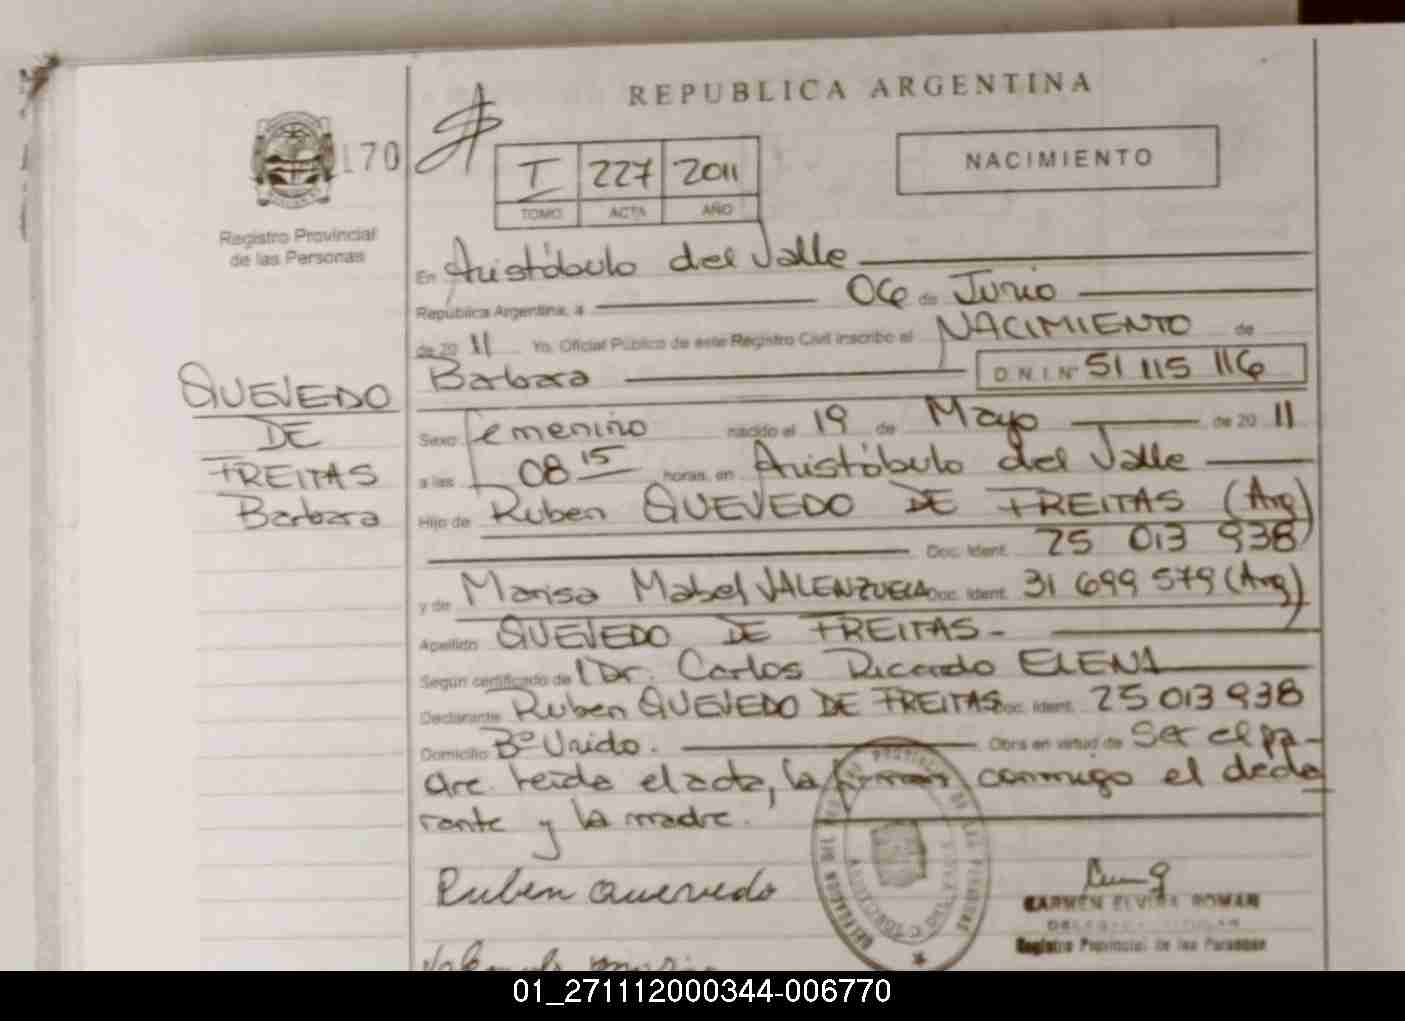 REPUBLICA ARGENTINA
170
NACIMIENTO
I 227 2011
TOMO ACTA AÑO
Registro Provincial
de las Personas
En Aristóbulo del Valle
República Argentina, a 06 de Junio
de 20 11 Yo, Oficial Público de este Registro Civil inscribo el NACIMIENTO de
Barbara D.N.I. Nº 51 115 116
QUEVEDO
DE
FREITAS
Barbara
Sexo femenino nacido el 19 de Mayo de 20 11
a las 08 15 horas, en Aristóbulo del Valle
Hijo de Ruben QUEVEDO DE FREITAS (Arg)
Doc. Ident. 25 013 938
y de Marisa Mabel VALENZUELA Doc. Ident. 31 699 579 (Arg)
Apellido QUEVEDO DE FREITAS-
Según certificado de Dr. Carlos Ricardo ELENA
Declarante Ruben QUEVEDO DE FREITAS Doc. Ident. 25 013 938
Domicilio Bº Unido. Obra en virtud de Ser el pa-
dre. leída el acta, la firman conmigo el decla
rante y la madre.
Ruben Quevedo
CARMEN ELVIRA ROMAN
Registro Provincial de las Personas
01_271112000344-006770